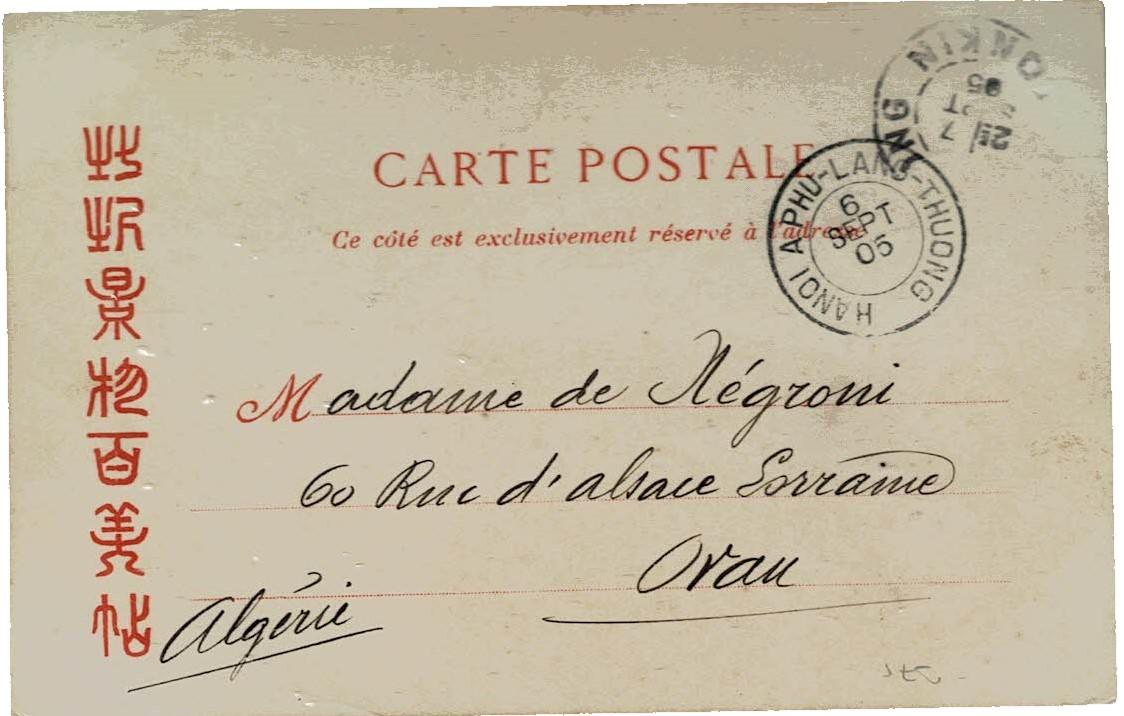 北圻景物百美帖
CARTE POSTALE
Ce côté est exclusivement réservé à l'adresse
HANOI A PHU-LANG-THUONG
6
SEPT
05
TONKIN
7
05
Madame de Négroni
60 Rue d'alsace Lorraine
Oran
Algérie